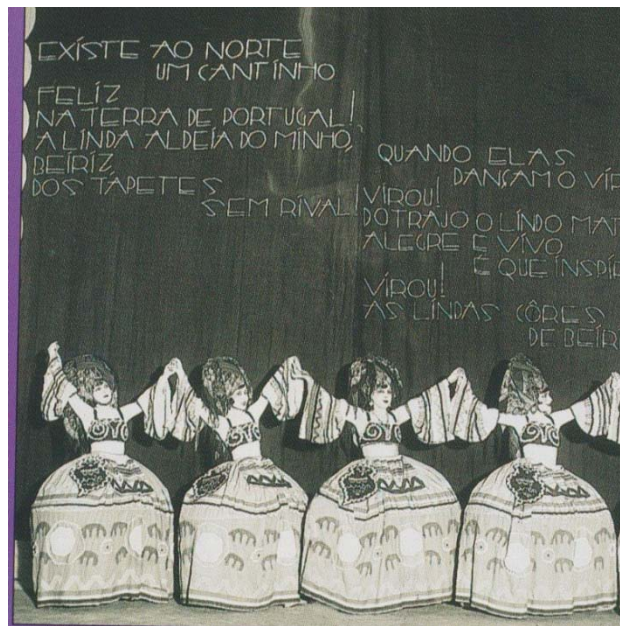 EXÍSTE AO NORTE
UM CANTINHO
FELÍZ
NA TERRA DE PORTUGAL!
A LÍNDA ALDEÍA DO MÍNHO,
BEÍRÍZ,
DOS TAPETES
SEM RÍVAL!
QUANDO ELAS
DANSAM O VÍR
VÍROU!
DO TRAJO O LÍNDO MAT
ALEGRE E VÍVO
É QUE INSPÍR
VÍROU!
AS LÍNDAS CÔRES
DE BEÍR